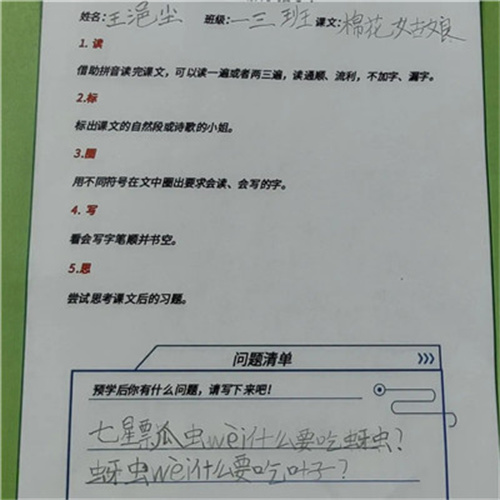 姓名:王浥尘 班级:一三班 课文:棉花姑娘
1.读
借助拼音读完课文,可以读一遍或者两三遍,读通顺、流利,不加字、漏字。
2.标
标出课文的自然段或诗歌的小姐。
3.圈
用不同符号在文中圈出要求会读、会写的字。
4.写
看会写字笔顺并书空。
5.思
尝试思考课文后的习题。
问题清单
预学后你有什么问题,请写下来吧!
七星瓢瓜虫wèi什么要吃蚜虫?
蚜虫wèi什么要吃叶子?